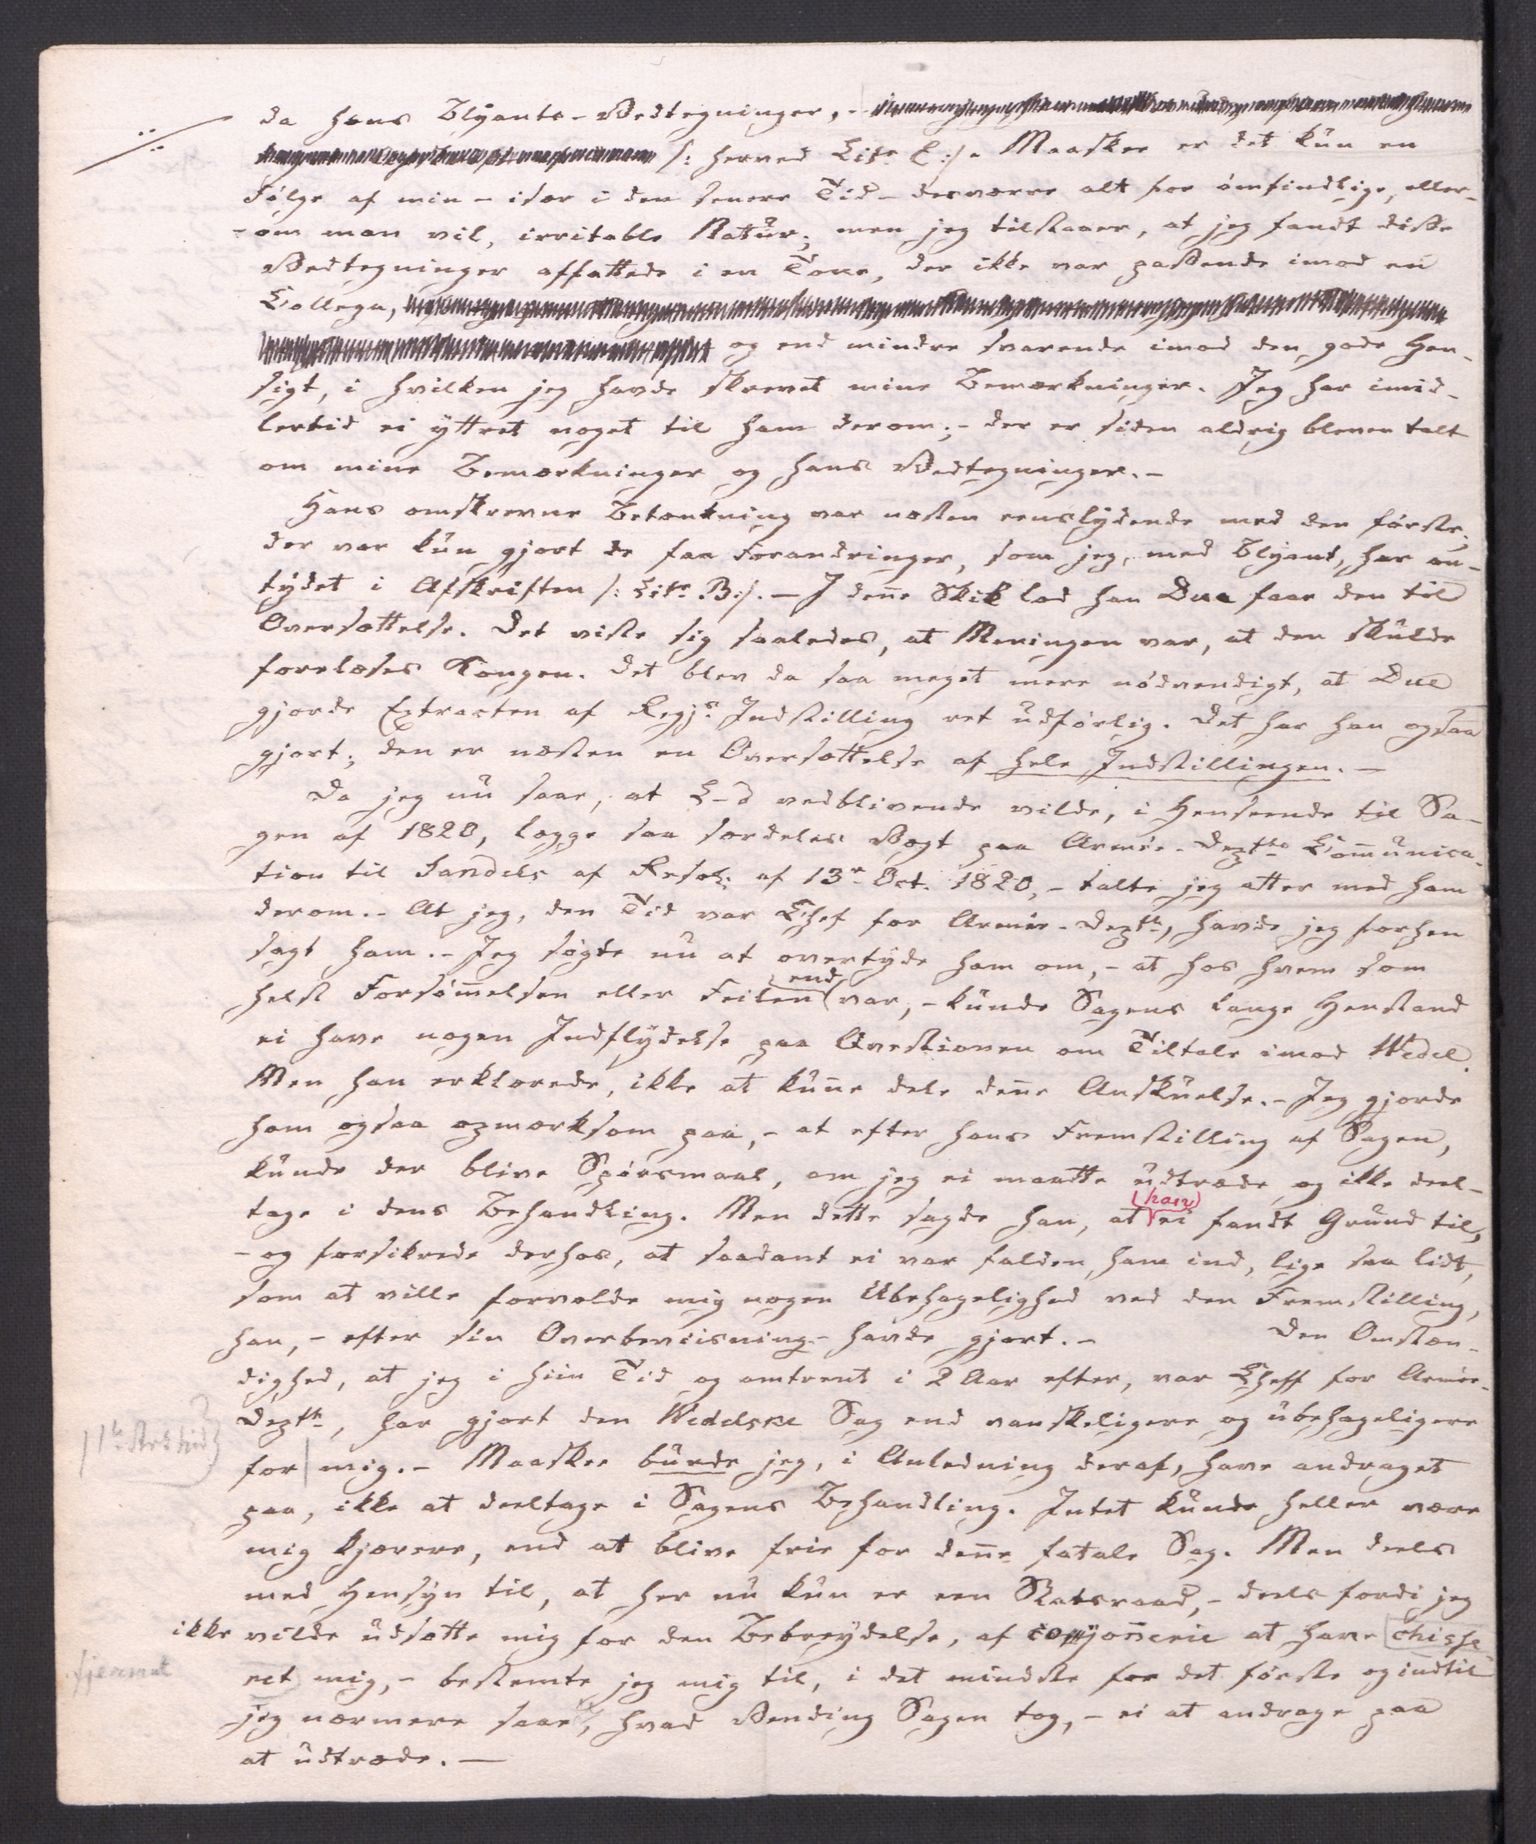 da hans Blyants-Vedtegninger, -
/: herved Litr C :/. Maaskee er det kun en
Følge af min - især i den senere Tid - desværre alt for ömfindtlige, eller -
- om man vil, irritable Natur; men jeg tilstaaer, at jeg fandt disse
Vedtegninger affattede i en Tone, der ikke var passende imod en
Collega,
og end mindre svarende imod den gode Hen-
sigt, i hvilken jeg havde skrevet mine Bemærkninger. Jeg har imid-
lertid ei yttret noget til ham derom; - der er siden aldrig bleven talt
om mine Bemærkninger og hans Vedtegninger. -
Hans omskrevne Betænkning var næsten eenslydende med den første;
der var kun gjort de faa Forandringer, som jeg, med Blyant, har an-
tydet i Afskriften /: Litr. B :/. - I deñe Skik lod han Due faae den til
Oversættelse. Det viste sig saaledes, at Meningen var, at den skulde
forelæses Kongen. Det blev da saa meget mere nödvendigt, at Due
gjorde Extracten af Regjs Indstilling ret udförlig. Det har han ogsaa
gjort; den er næsten en Oversættelse af hele Indstillingen. -
Da jeg nu saae, at L-d vedblivende vilde, i Henseende til Sa-
gen af 1820, lægge saa særdeles Vægt paa Armée-Depts Com̃unica-
tion til Sandels af Resol: af 13r Oct. 1820, - talte jeg atter med ham
derom. - At jeg, den Tid var Chef for Armée-Deptt, havde jeg forhen
sagt ham. - Jeg søgte nu at overtyde ham om, - at hos hvem som
end
helst Forsöm̃elsen eller Feilen var, - kunde Sagens lange Henstand
ei have nogen Indflydelse paa Qvestionen om Tiltale imod Wedel.
Men han erklærede, ikke at kuñe dele deñe Anskuelse. - Jeg gjorde
ham ogsaa opmærksom paa, - at efter hans Fremstilling af Sagen,
kunde der blive Spörsmaal, om jeg ei maatte udtræde og ikke deel-
(han)
tage i dens Behandling. Men dette sagde han, at ei fandt Grund til,
- og forsikrede derhos, at saadant ei var falden ham ind, lige saa lidt,
som at ville forvolde mig nogen Ubehagelighed ved den Fremstilling,
han, - efter sin Overbeviisning - havde gjort. - Den Omstæn-
dighed, at jeg i hiin Tid og omtrent i 2 Aar efter, var Cheff for Armée-
Deptt, har gjort den Wedelske Sag end vanskeligere og ubehageligere
for mig. - Maaskee burde jeg, i Anledning deraf, have andraget
paa, ikke at deeltage i Sagens Behandling. Intet kunde heller være
mig kjærere, end at blive frie for deñe fatale Sag. Men deels
med Hensyn til, at her nu kun er een Statsraad, - deels fordi jeg
ikke vilde udsætte mig for den Bebreydelse, af cojoñerie at have
fjernet
ret mig, - bestemte jeg mig til, i det mindste for det første og indtil
jeg nærmere saae, hvad Vending Sagen tog, - ei at andrage paa
at udtræde. -